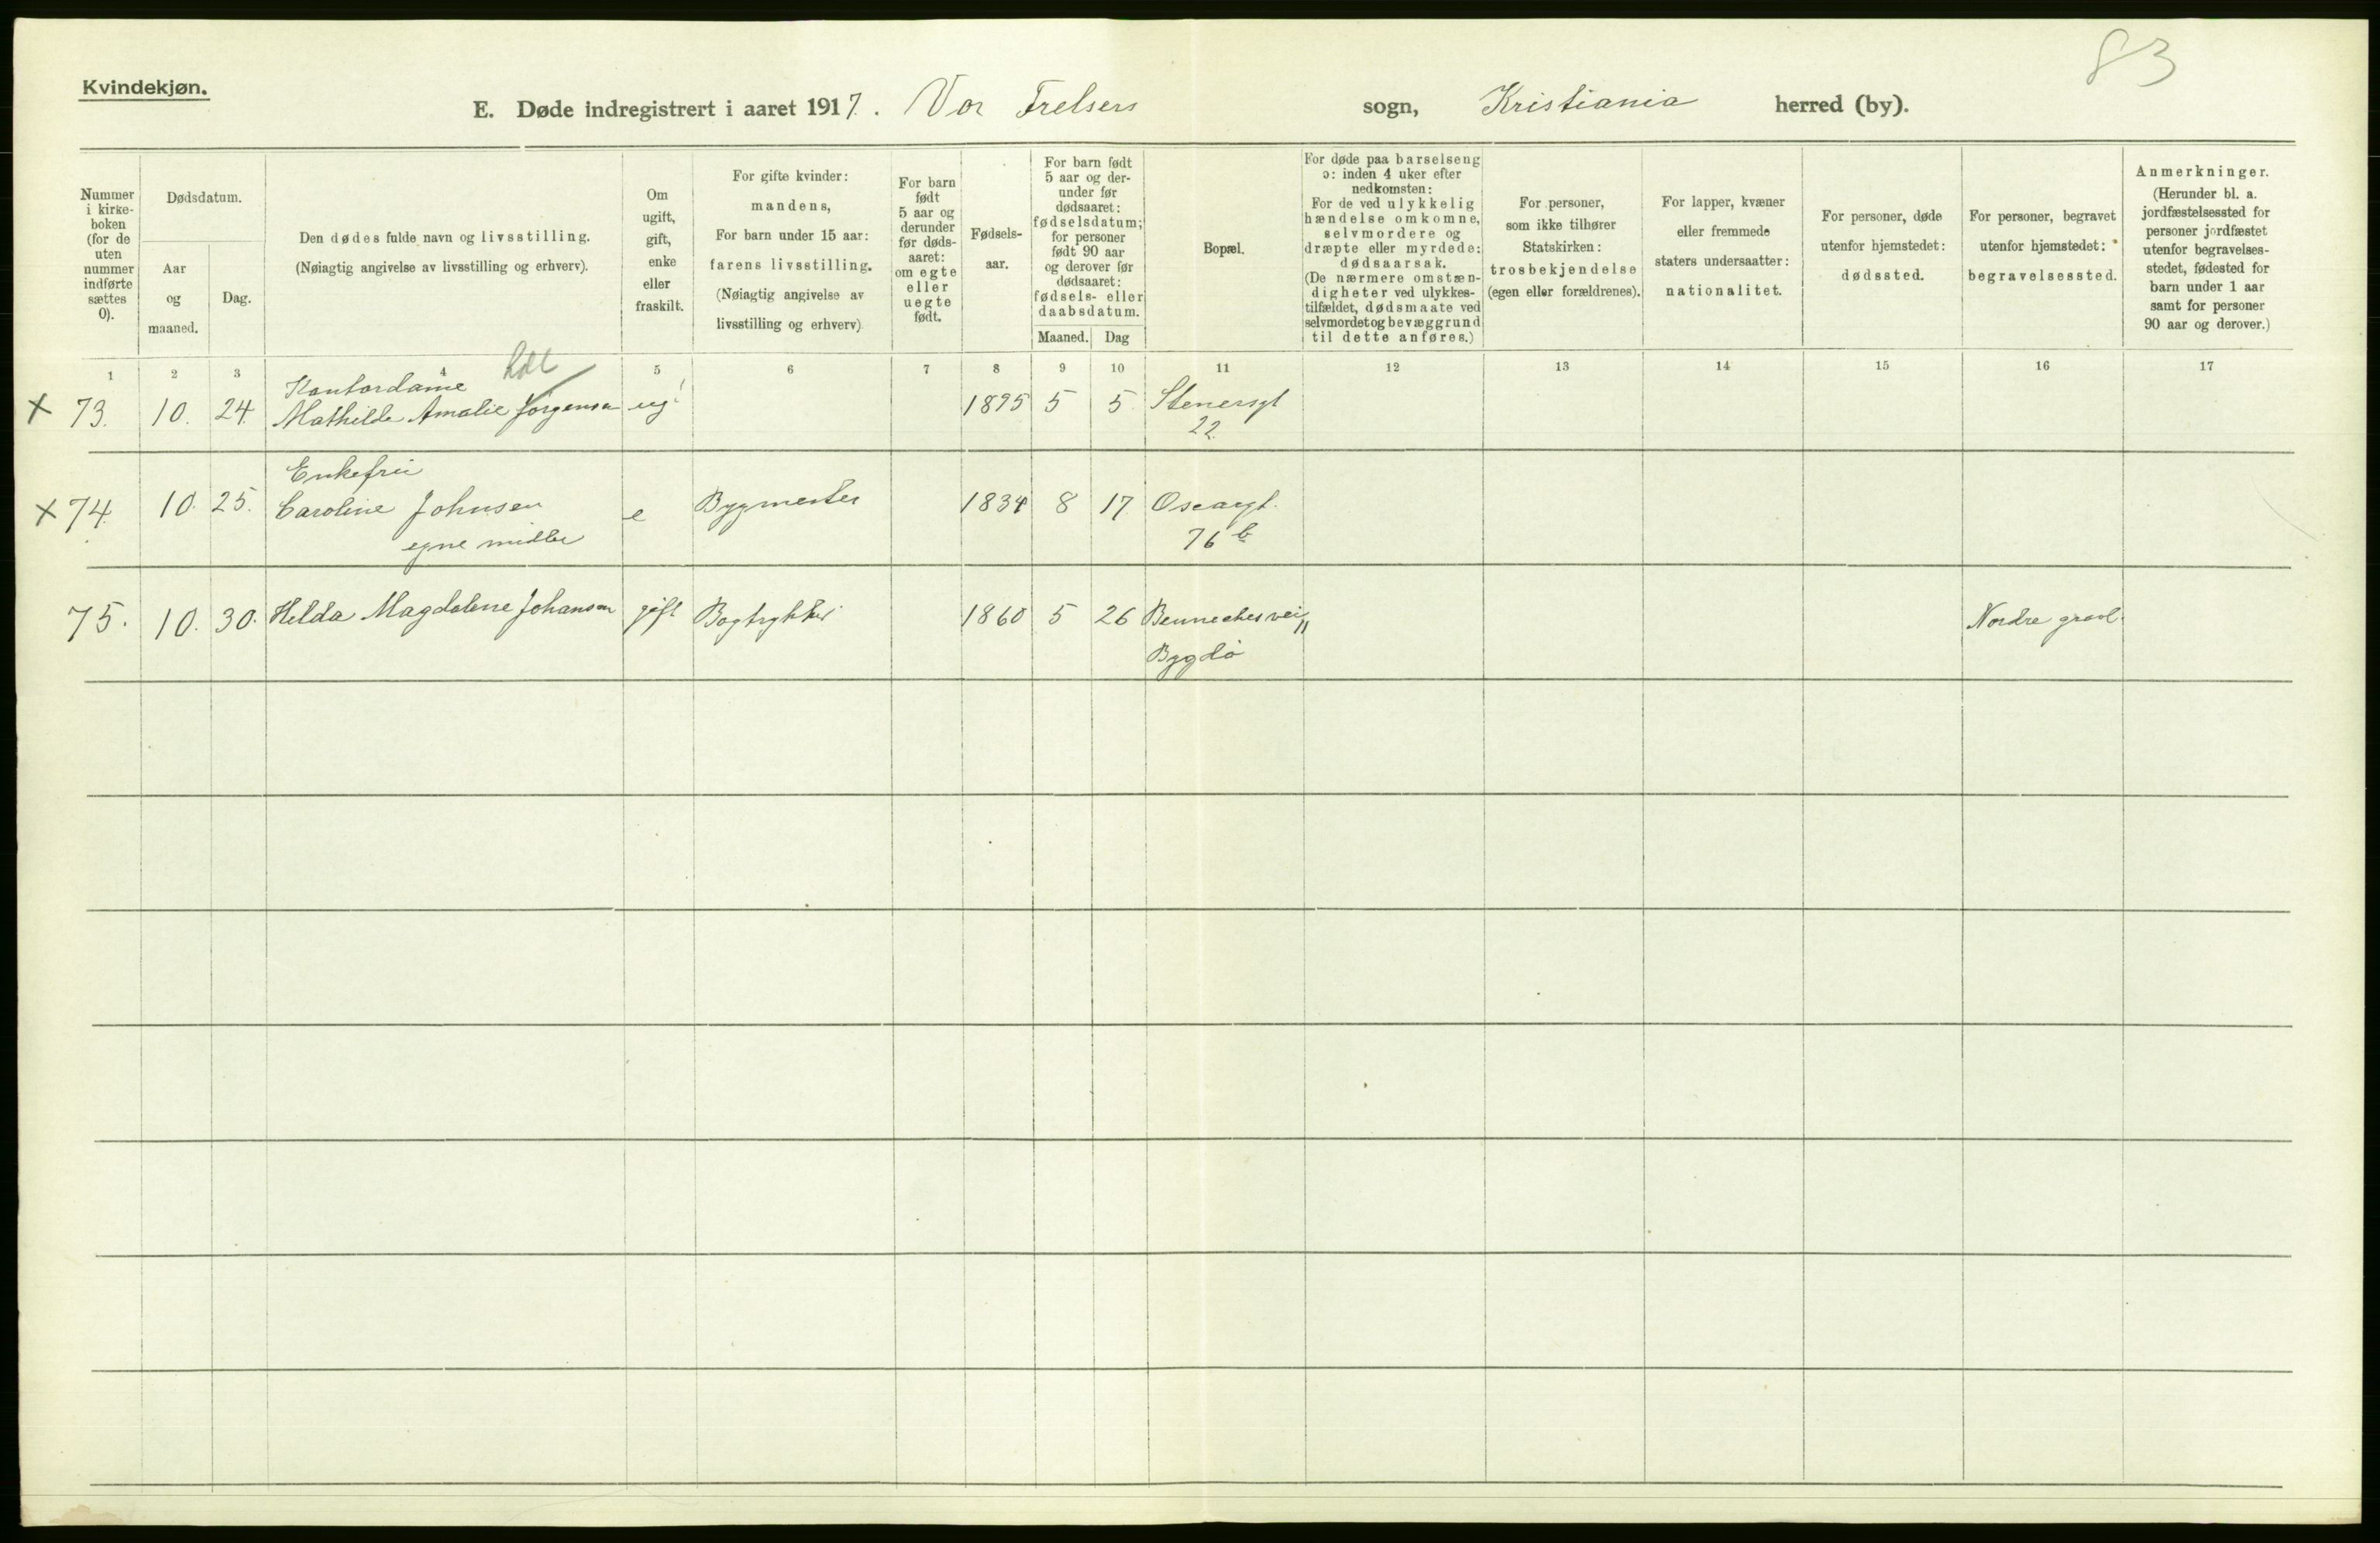 83
Kvindekjøn.
E. Døde indregistrert i aaret 1917. Vor Frelsers sogn, Kristiania herred (by).
Nummer
i kirke-
boken
(for de
uten
nummer
indførte
sættes
0).
Dødsdatum.
Aar
og
maaned.
Dag.
Den dødes fulde navn og livsstilling.
(Nøiagtig angivelse av livsstilling og erhverv).
Om
ugift,
gift,
enke
eller
fraskilt.
For gifte kvinder:
mandens,
For barn under 15 aar:
farens livsstilling.
(Nøiagtig angivelse av
livsstilling og erhverv)
For barn
født
5 aar og
derunder
før døds-
aaret:
om egte
eller
uegte
født.
Fødsels-
aar.
For barn født
5 aar og der-
under før
dødsaaret:
fødselsdatum;
for personer
født 90 aar
og derover før
dødsaaret:
fødsels- eller
daabsdatum.
Maaned. Dag
Bopæl.
For døde paa barselseng
ɔ: inden 4 uker efter
nedkomsten:
For de ved ulykkelig
hændelse omkomne,
selvmordere og
dræpte eller myrdede:
dødsaarsak.
(De nærmere omstæn-
digheter ved ulykkes-
tilfældet, dødsmaate ved
selvmordet og bevæggrund
til dette anføres.)
For personer,
som ikke tilhører
Statskirken:
trosbekjendelse
(egen eller forældrenes).
For lapper, kvæner
eller fremmede
staters undersaatter:
nationalitet.
For personer, døde
utenfor hjemstedet:
dødssted.
For personer, begravet
utenfor hjemstedet:
begravelsessted.
Anmerkninger.
(Herunder bl. a.
jordfæstelsessted for
personer jordfæstet
utenfor begravelses-
stedet, fødested for
barn under 1 aar
samt for personer
90 aar og derover.)
1 2 3 4 5 6 7 8 9 10 11 12 13 14 15 16 17
Kontordame
x 73. 10. 24. Mathilde Amalie Jørgensen ug. 1895 5 5 Stenersgt
22.
Enkefru
x 74. 10. 25. Caroline Johnsen e Bygmester 1834 8 17 Oscarsgt.
egne midler 76 b
75. 10. 30. Helda Magdalene Johansen gift Bogtrykker 1860 5 26 Bennechesvei 11 Nordre gravl.
Bygdö